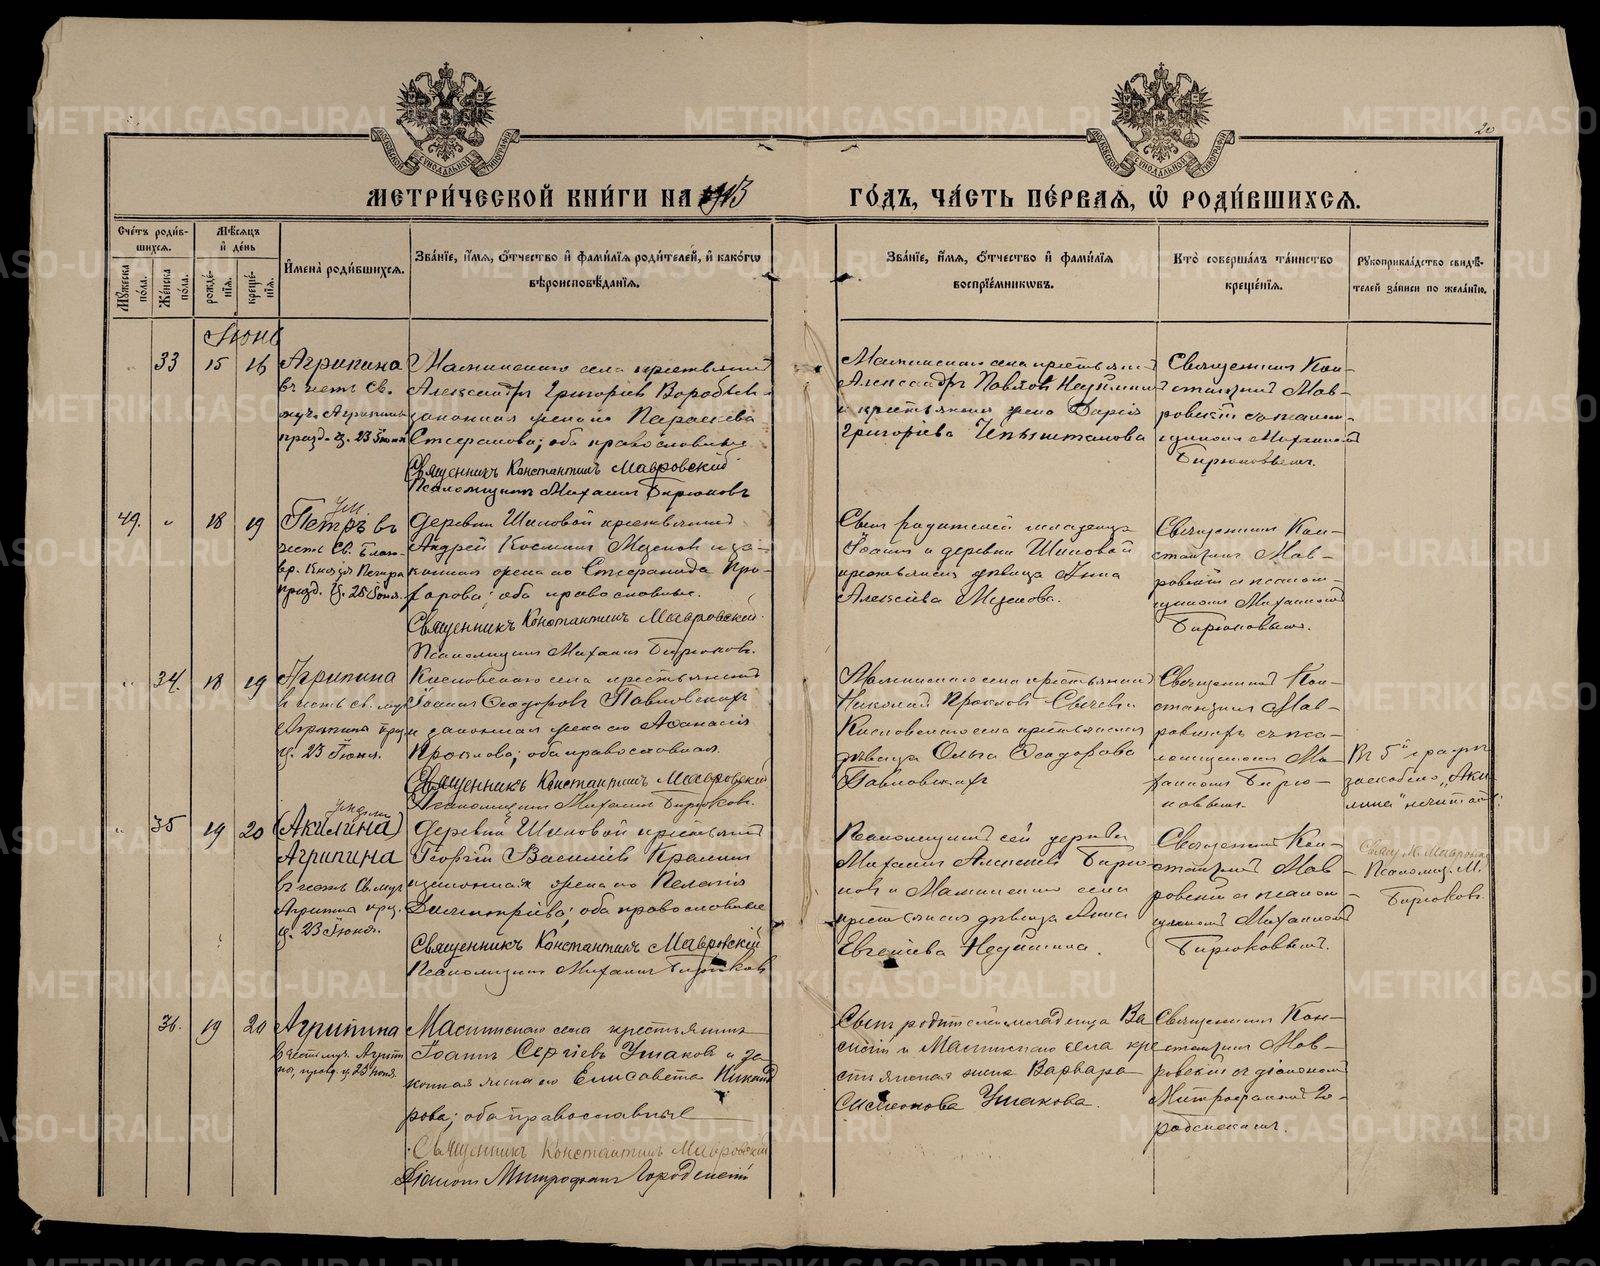 20
МЕТРИ́ЧЕСКОЙ КНИ́ГИ НА 1913
ГО́ДЪ, ЧА́СТЬ ПЕ́РВАѦ, Ѡ҆ РОДИ́ВШИХСѦ.
Сче́тъ роди́в-
шихсѧ.
Мѣ́сѧцъ
и҆ де́нь
Мꙋ́жеска по́ла.
Же́нска по́ла.
рожде́-
нїѧ.
креще́-
нїѧ.
И҆мена̀ роди́вшихсѧ.
Зва́нїе, и҆́мѧ, ѻ҆́тчество и҆ фами́лїѧ роди́телей, и҆ како́гѡ
вѣроисповѣ́данїѧ.
Зва́нїе, и҆́мѧ, ѻ҆́тчество и҆ фами́лїѧ
воспрїе́мникѡвъ.
Кто̀ соверша́лъ та́инство
креще́нїѧ.
Рꙋкоприкла́дство свидѣ́-
телей за́писи по жела́нїю.
Іюнь
33 15 16
Агрипина
въ честь Св.
муч. Агрипины
празд. 23 Іюня
Маминскаго села крестьянинъ
Александръ Григоріевъ Воробьев
законная жена его Параскева
Стефанова; оба православные
Священникъ Константинъ Мавровскій
Псаломщикъ Михаилъ Бирюковъ
Маминскаго села крестьянинъ
Александръ Павловъ
и крестьянская жена Дарія
Григоріева
Священникъ Кон-
стантинъ Мав-
ровскій съ псалом-
щикомъ Михаиломъ
Бирюковымъ.
49. " 18 19
Ум.
Петръ въ
честь Св. Благо-
вѣр. Князя Петра
празд. 25 Іюня.
Деревни Шиповой крестьянинъ
Андрей Косминъ и за-
конная жена его Стефанида Про-
хорова; оба православные.
Священникъ Константинъ Мавровскій.
Псаломщикъ Михаилъ Бирюковъ.
Сынъ родителей младенца
Іоаннъ и деревни Шиповой
крестьянская дѣвица Анна
Алексѣева
Священникъ Кон-
стантинъ Мав-
ровскій съ псалом-
щикомъ Михаиломъ
Бирюковымъ.
" 34. 18 19
Агрипина
въ честь св. муч.
Агрипины праз.
23 Іюня.
Кисловскаго села крестьянинъ
Іоаннъ Ѳеодоровъ Павловскихъ
и законная жена его Аѳанасія
Проклова; оба православные.
Священникъ Константинъ Мавровскій
Псаломщикъ Михаилъ Бирюковъ.
Маминскаго села крестьянинъ
Николай Прокловъ и
Кисловскаго села крестьянская
дѣвица Ольга Ѳеодорова
Павловскихъ
Священникъ Кон-
стантинъ Мав-
ровскій съ пса-
ломщикомъ Ми-
хаиломъ Бирю-
ковымъ.
Въ 5й графѣ
заскоблено "Аки-
лина" нечитать.
Свящ. К. Мавровскій
Псаломщ. М.
Бирюковъ.
" 35 19 20
(Акилина)
Агрипина
въ честь Св. муч.
Агрипины праз.
23 Іюня.
Деревни Шиповой крестьянинъ
Георгій Василіевъ
и законная жена его Пелагія
Димитріева; оба православные
Священникъ Константинъ Мавровскій
Псаломщикъ Михаилъ Бирюковъ
Псаломщикъ сей церкви
Михаилъ Алексѣевъ Бирю-
ковъ и Маминскаго села
крестьянская дѣвица Анна
Евгеніева
Священникъ Кон-
стантинъ Мав-
ровскій съ псалом-
щикомъ Михаиломъ
Бирюковымъ.
36. 19 20
Агрипина
въ честь муч. Агрипи-
ны, празд. 23 Іюня.
Маминскаго села крестьянинъ
Іоаннъ Сергіевъ Ушаковъ и за-
конная жена его Елисавета Никанд-
рова; оба православные
Священникъ Константинъ Мавровскій
Діаконъ Митрофанъ Городенскій
Сынъ родителей младенца Ва-
силій и Маминскаго села кре-
стьянская жена Варвара
Симеонова Ушакова.
Священникъ Кон-
стантинъ Мав-
ровскій съ діакономъ
Митрофаномъ Го-
роденскимъ.